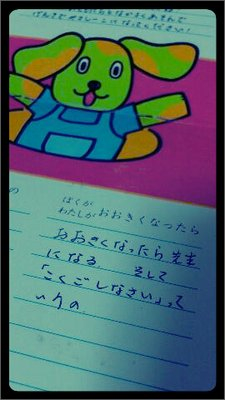 げんきで
ください!
の
ぼくが
わたしが おおきくなったら
おおきくなったら先生
になる。 そして
「こくごしなさい」って
いうの。